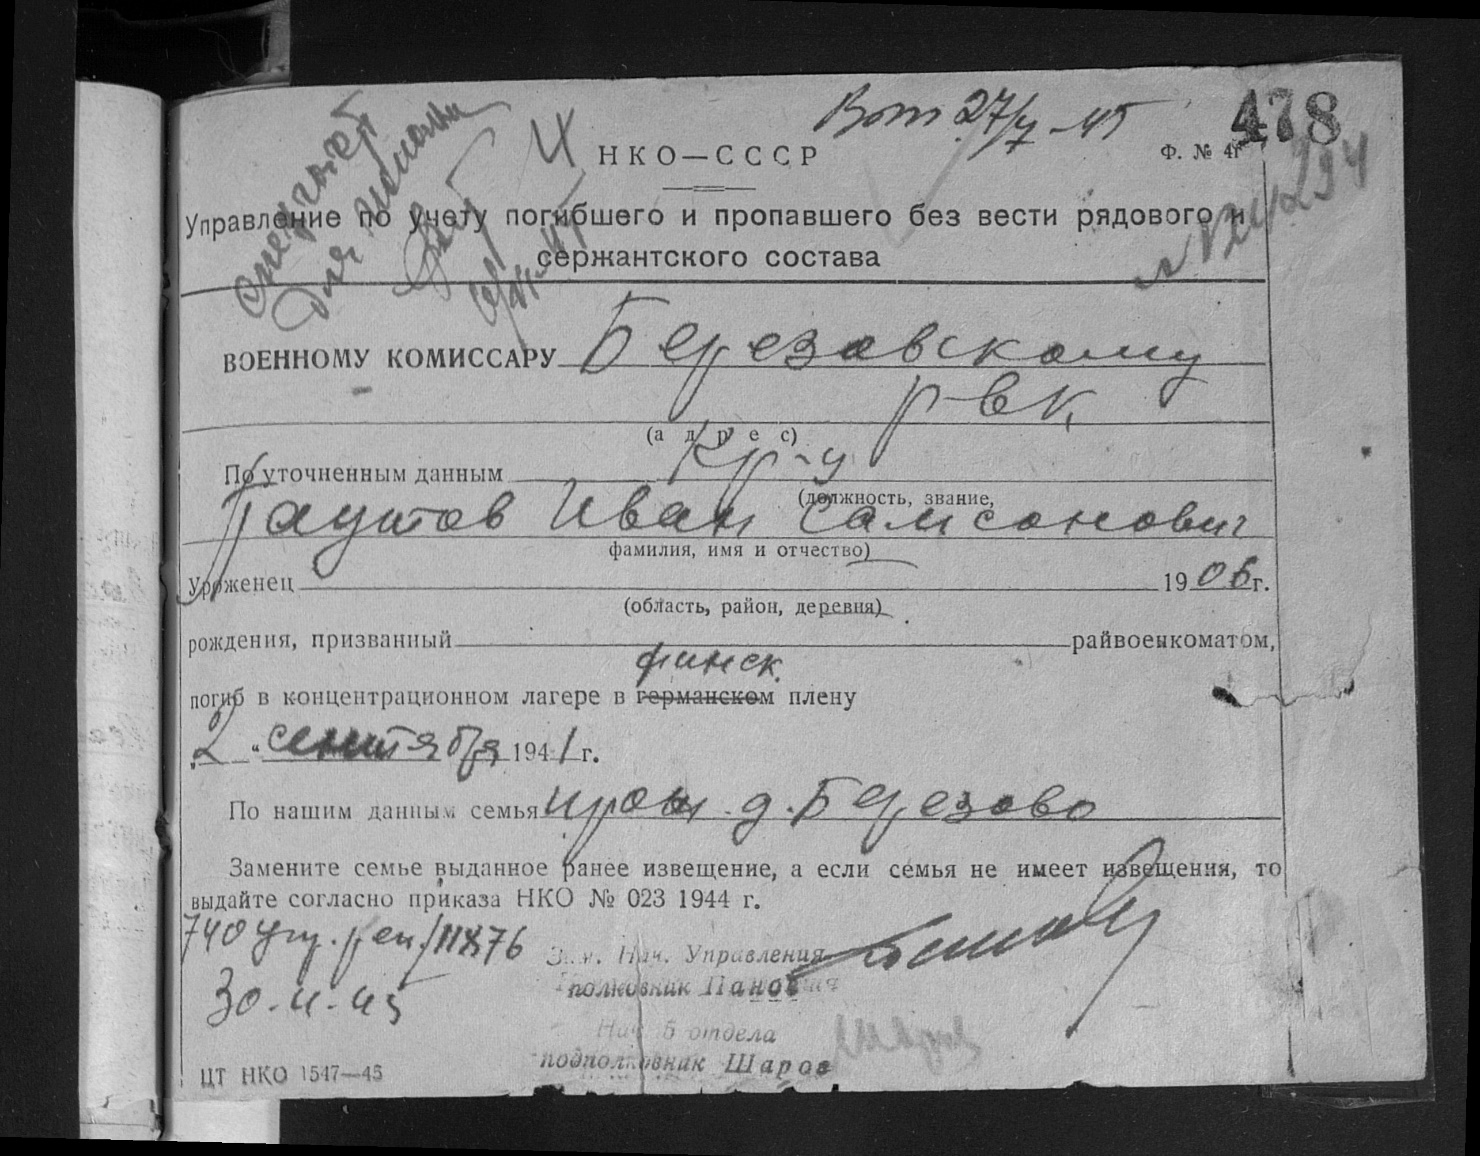 478
Н К О — С С С Р
Ф. № 4г
Управление по учету погибшего и пропавшего без вести рядового и
сержантского состава
ВОЕННОМУ КОМИССАРУ Березовскому
РВК
(а д р е с)
По уточненным данным кр-ц
(должность, звание,
Паутов Иван Самсонович
фамилия, имя и отчество)
Уроженец 1906 г.
(область, район, деревня)
рождения, призванный райвоенкоматом,
финск.
погиб в концентрационном лагере в германском плену
„2“ сентября 1941 г.
По нашим данным семья прож. д. Березово
Замените семье выданное ранее извещение, а если семья не имеет извещения, то
выдайте согласно приказа НКО № 023 1944 г.
Зам. Нач. Управления
полковник Панов
Нач. 5 отдела
подполковник Шаров
ЦТ НКО 1547—45